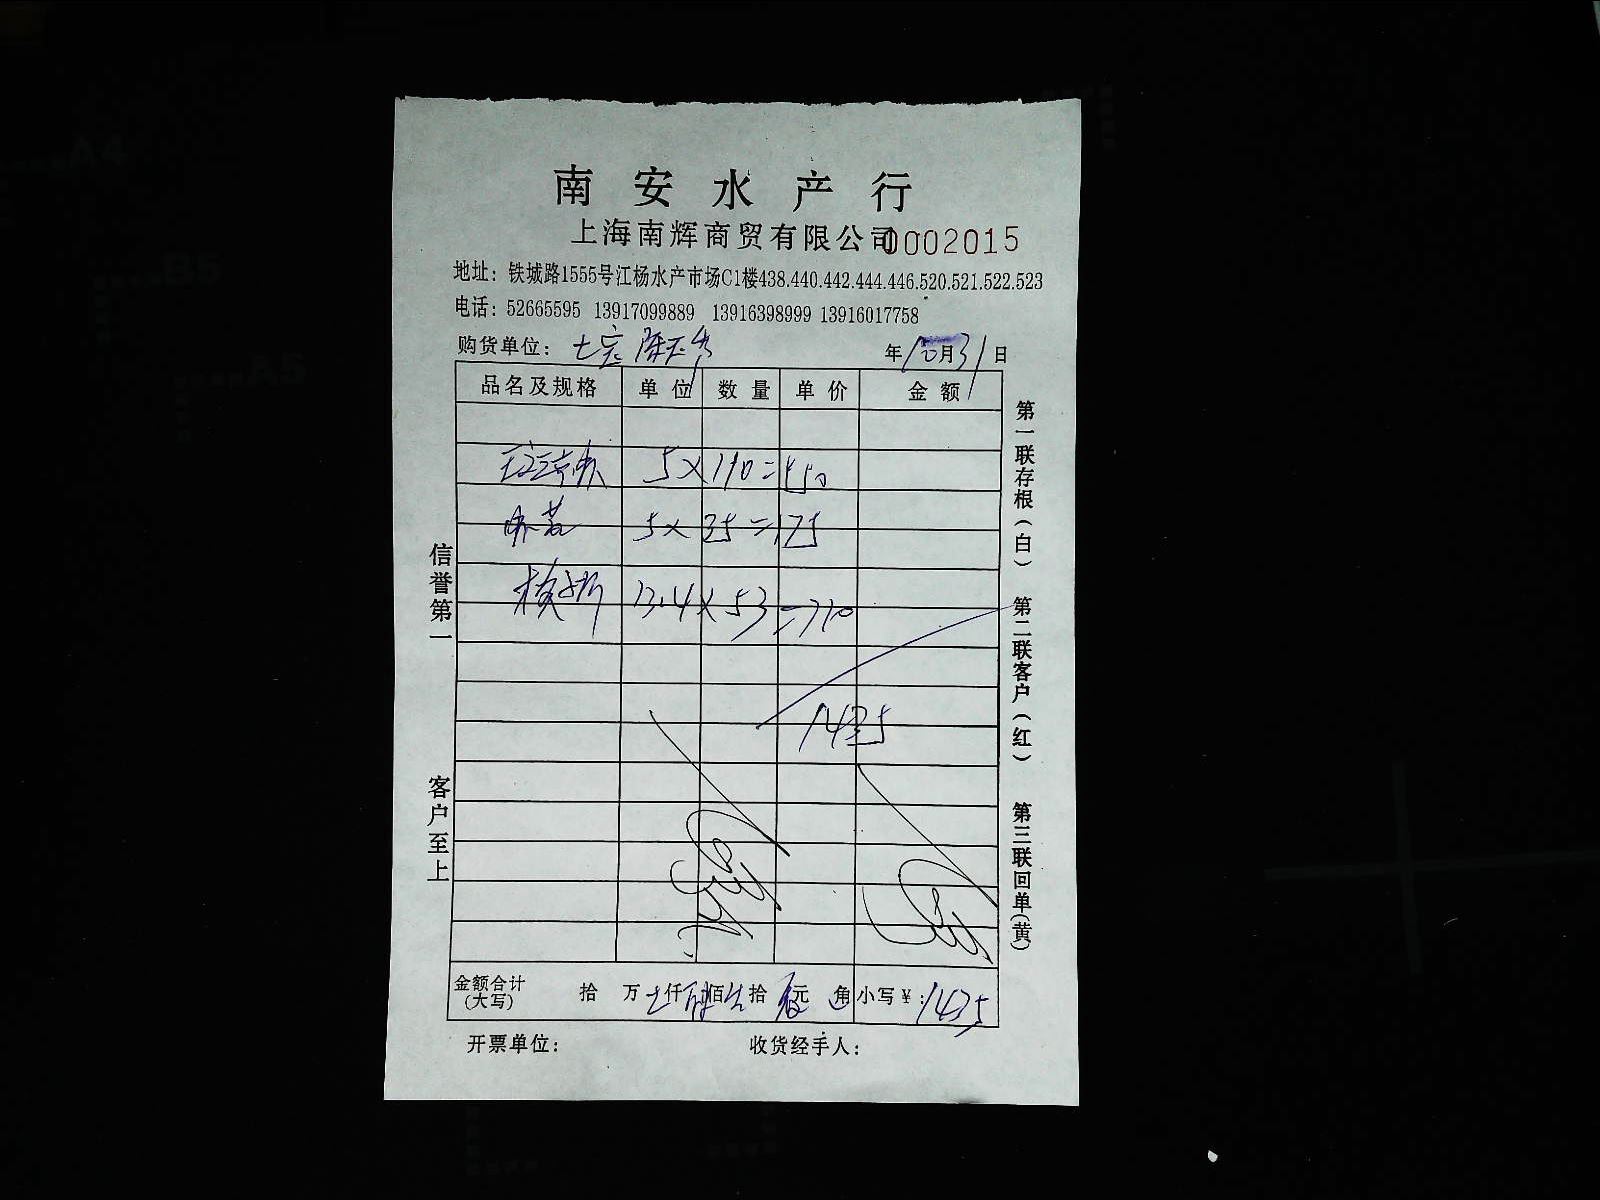 南安水产行
上海南辉商贸有限公司 0002015
地址：铁城路1555号江杨水产市场C1楼438.440.442.444.446.520.521.522.523
电话：52665595 13917099889 13916398999 13916017758
购货单位： 年10月31日
品名及规格 单位 数量 单价 金额
5×110=550
5×35=175
13.4×53=710
1435
金额合计 拾 万 仟 佰 拾 元 角 小写￥：1435
(大写)
开票单位： 收货经手人：
信誉第一 客户至上
第一联存根(白) 第二联客户(红) 第三联回单(黄)